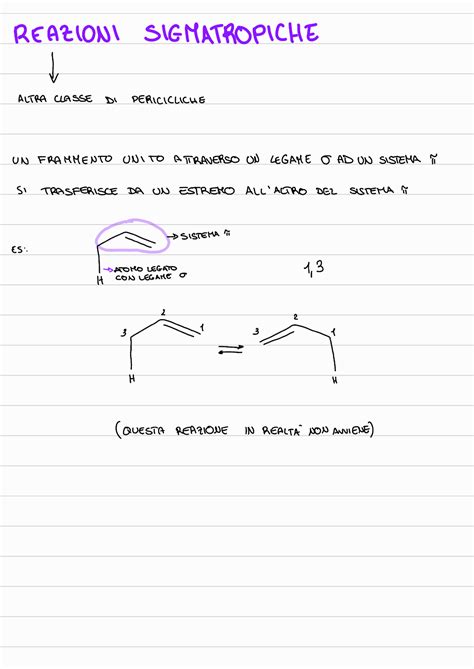 REAZIONI SIGMATROPICHE
ALTRA CLASSE DI PERICICLICHE
UN FRAMMENTO UNITO ATTRAVERSO UN LEGAME σ AD UN SISTEMA π
SI TRASFERISCE DA UN ESTREMO ALL'ALTRO DEL SISTEMA π
ES:
SISTEMA π
H
ATOMO LEGATO
CON LEGAME σ
1,3
3 2 1
H
3 2 1
H
(QUESTA REAZIONE IN REALTÀ NON AVVIENE)